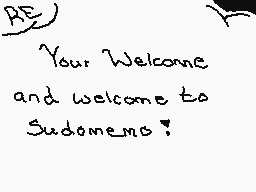 RE
Your Welcome
and welcome to
Sudomemo!